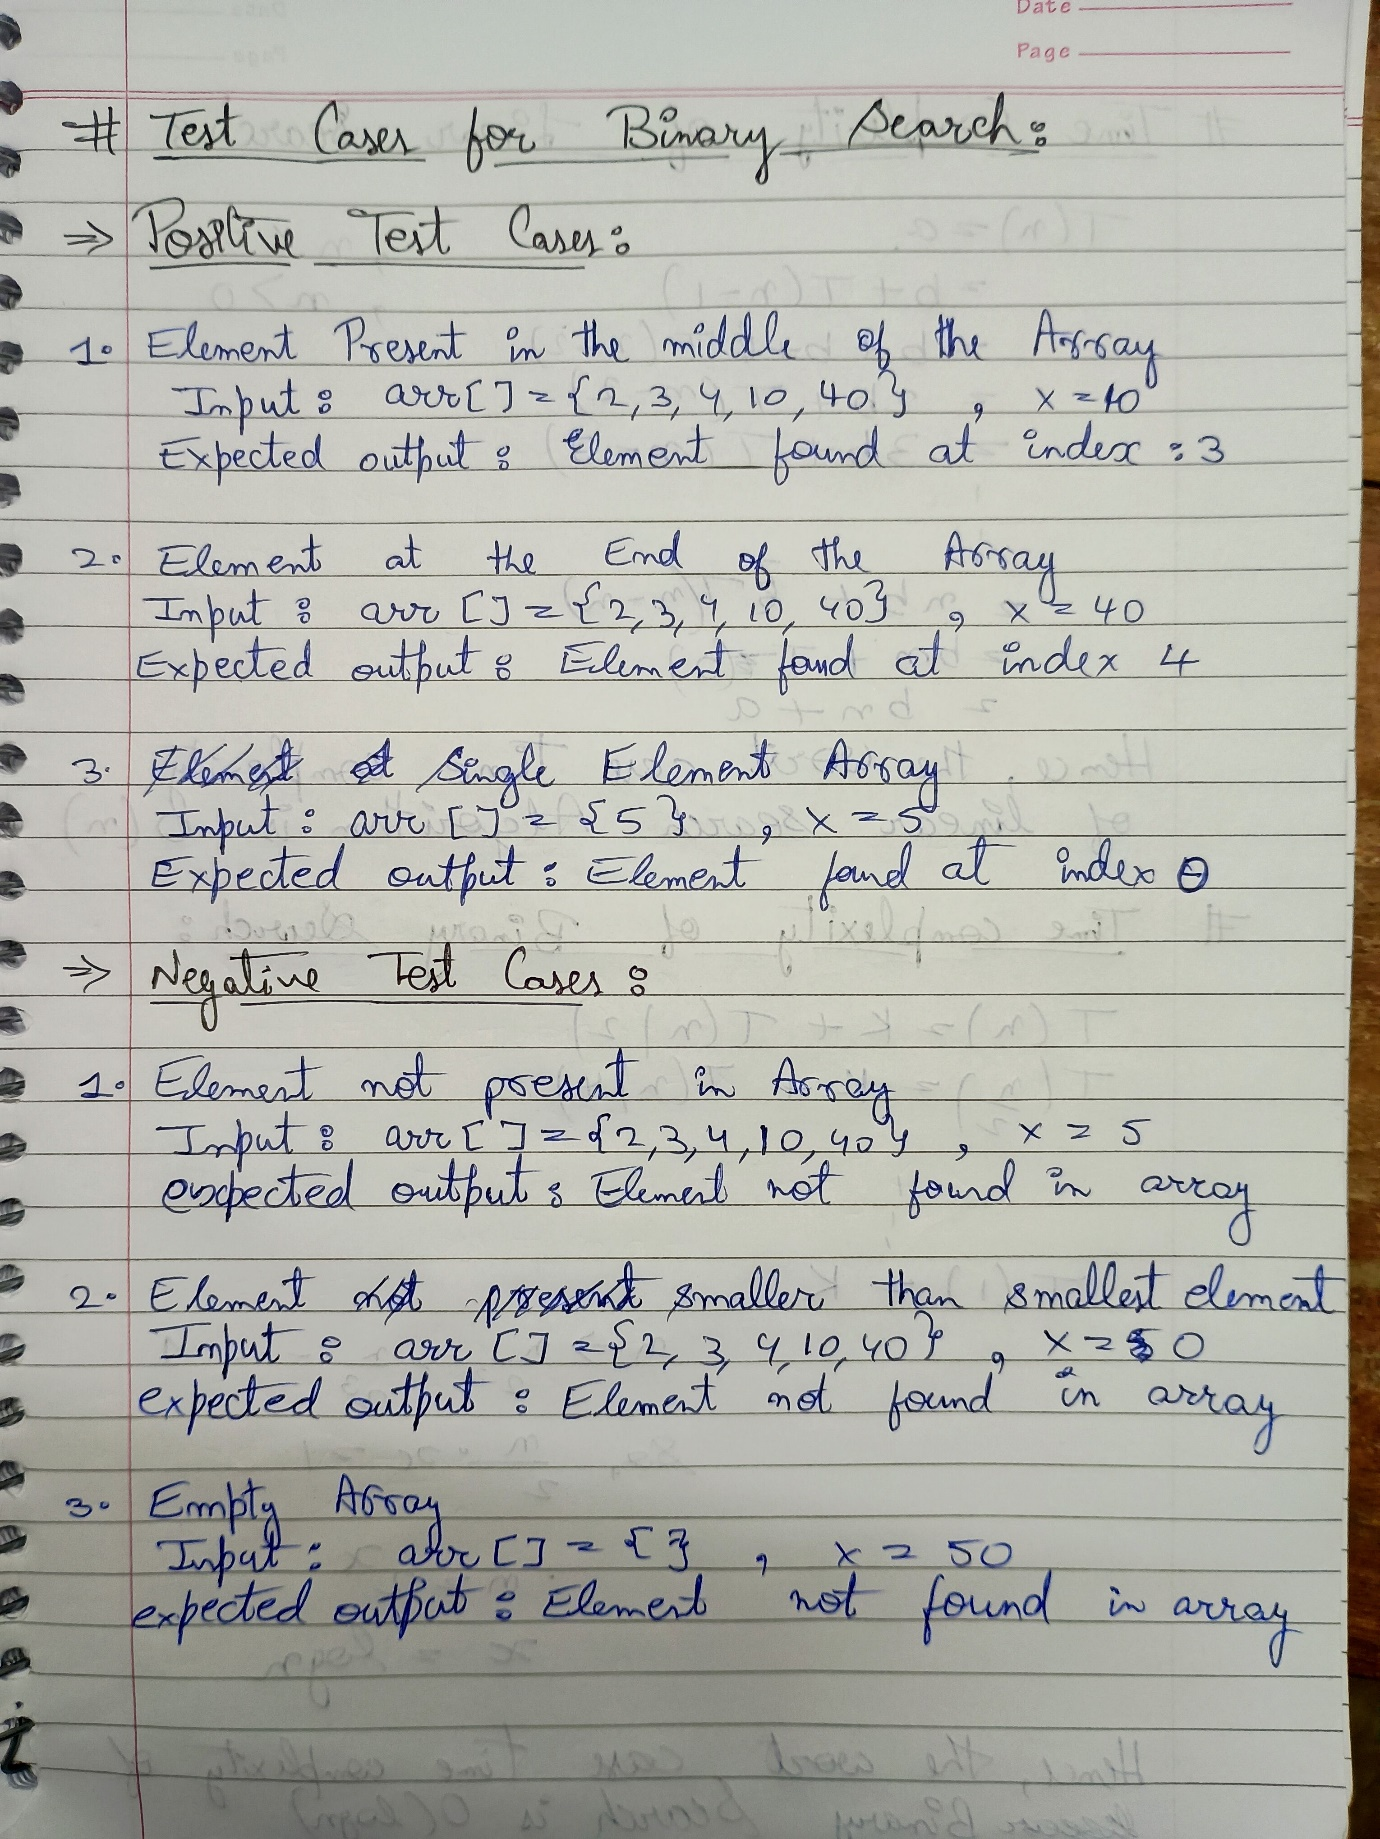 Date
Page
# Test Cases for Binary Search:
⇒ Positive Test Cases:
1. Element Present in the middle of the Array
Input: arr[] = {2, 3, 4, 10, 40} , x = 10
Expected output: Element found at index : 3
2. Element at the End of the Array
Input: arr [] = {2, 3, 4, 10, 40} , x = 40
Expected output: Element found at index 4
3. Single Element Array
Input: arr [] = {5} , x = 5
Expected output: Element found at index 0
⇒ Negative Test Cases:
1. Element not present in Array
Input: arr[] = {2, 3, 4, 10, 40} , x = 5
expected output: Element not found in array
2. Element smaller than smallest element
Input: arr [] = {2, 3, 4, 10, 40} , x = 0
expected output: Element not found in array
3. Empty Array
Input: arr [] = {} , x = 50
expected output: Element not found in array